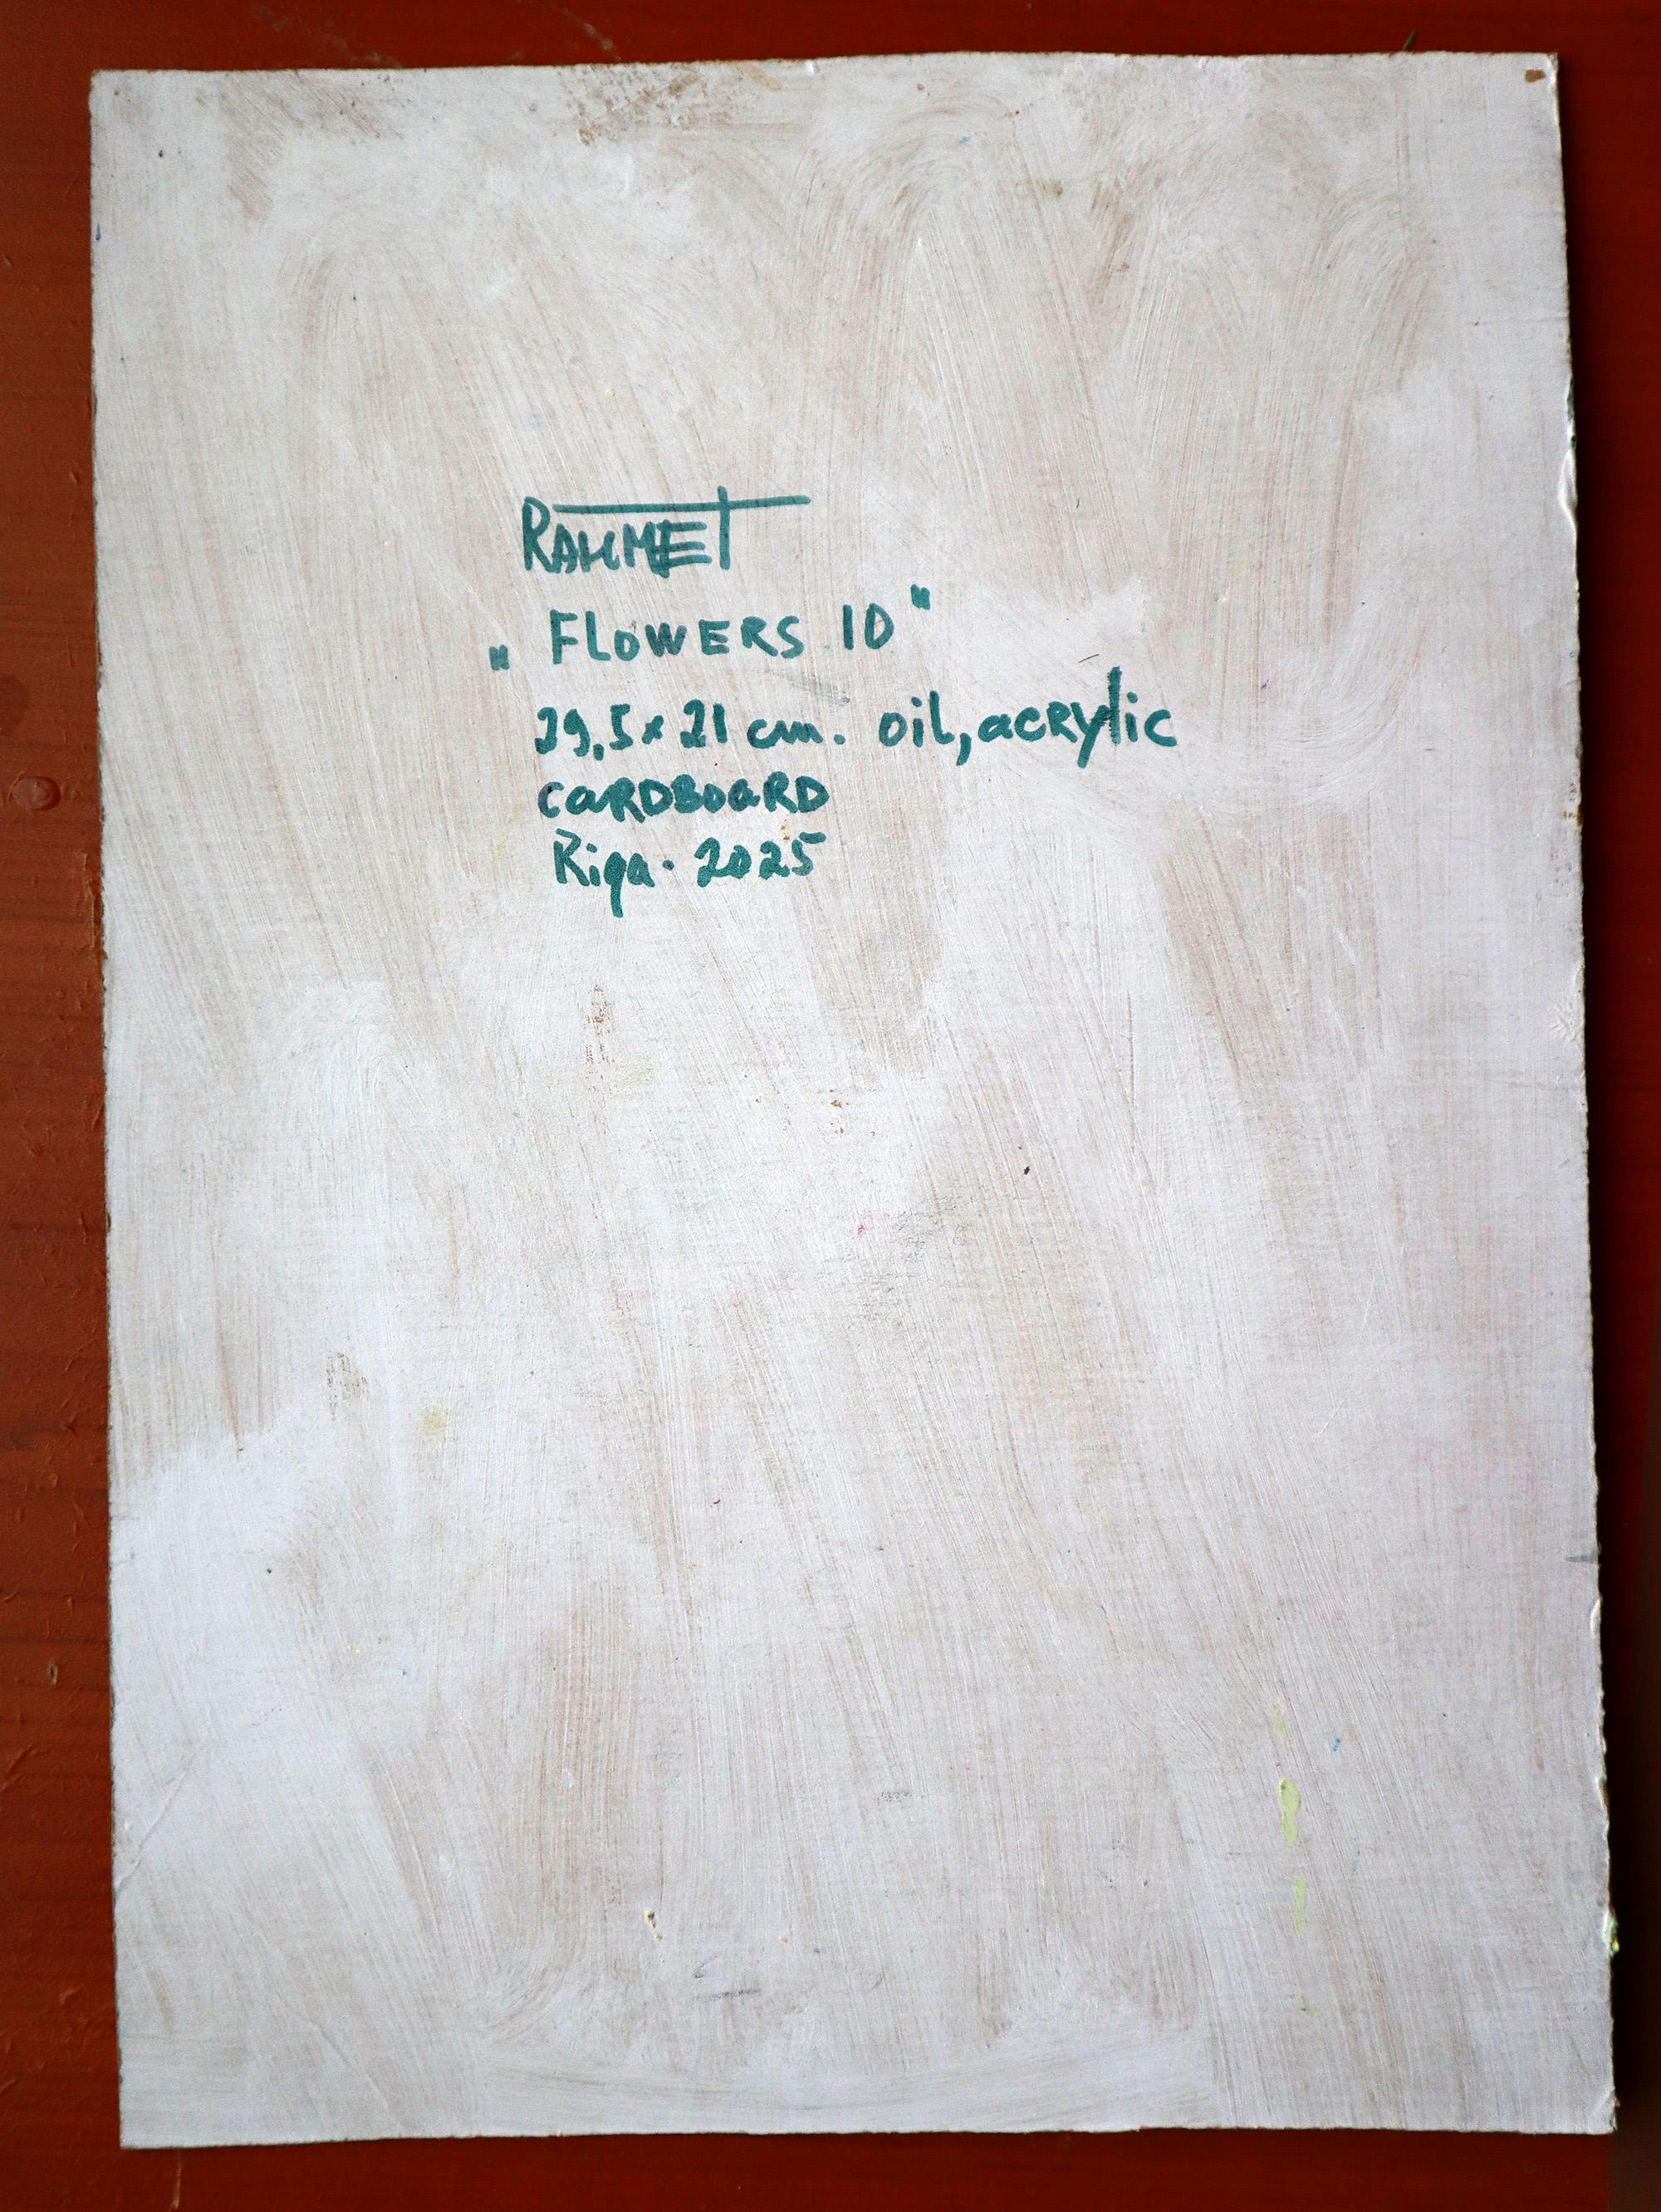 RAHMET
„ FLOWERS 10 "
29,5 x 21 cm. oil, acrylic
CARDBOARD
Riga. 2025